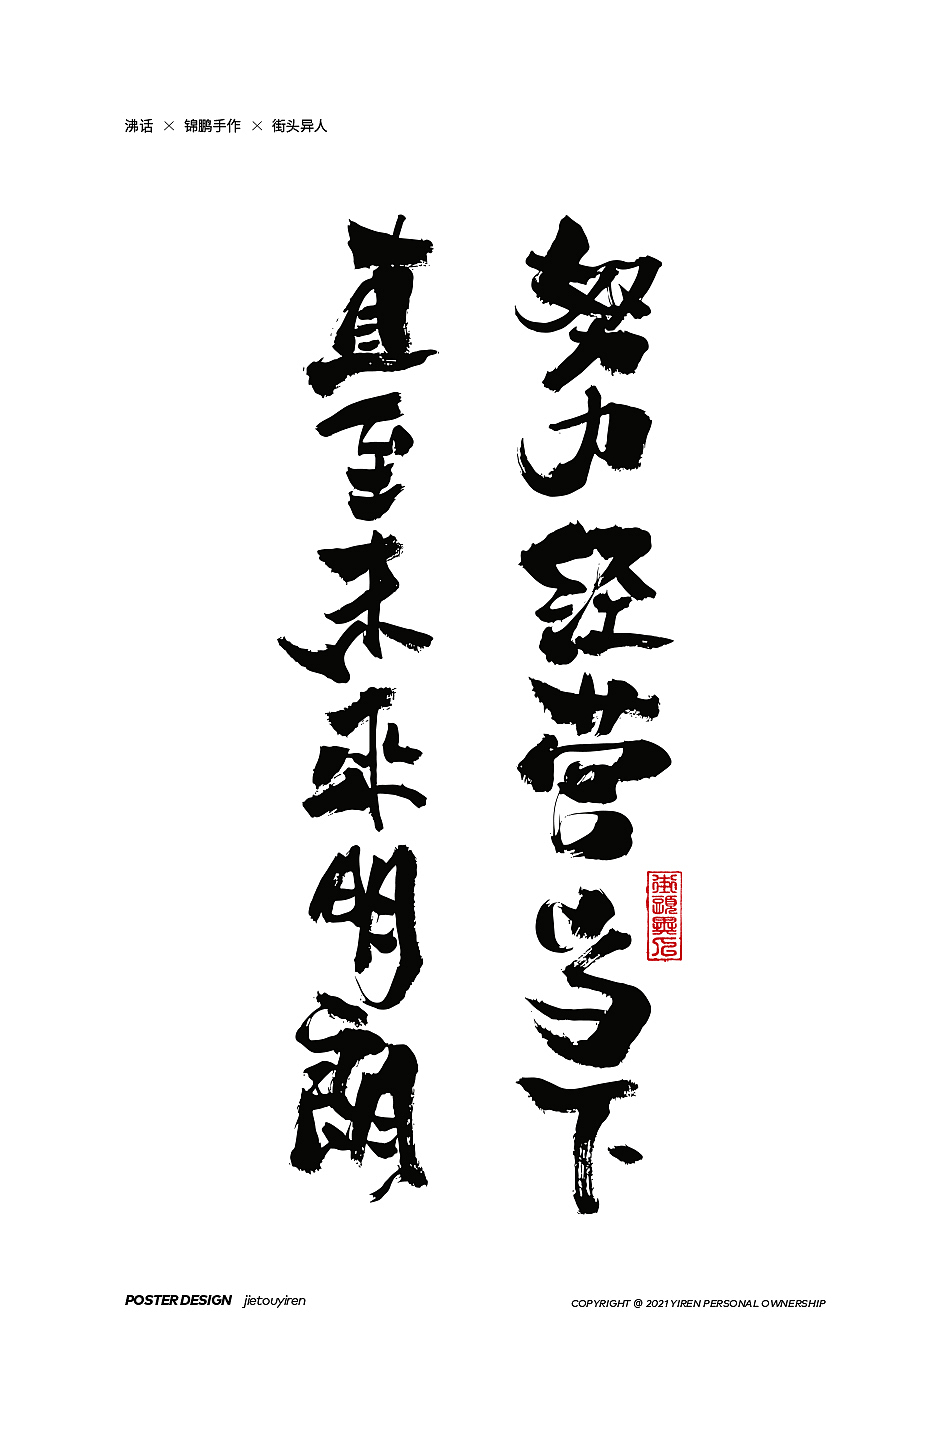 沸话 × 锦鹏手作 × 街头异人
努力经营当下
直至未来明朗
街頭異人
POSTER DESIGN jietouyiren
COPYRIGHT @ 2021 YIREN PERSONAL OWNERSHIP